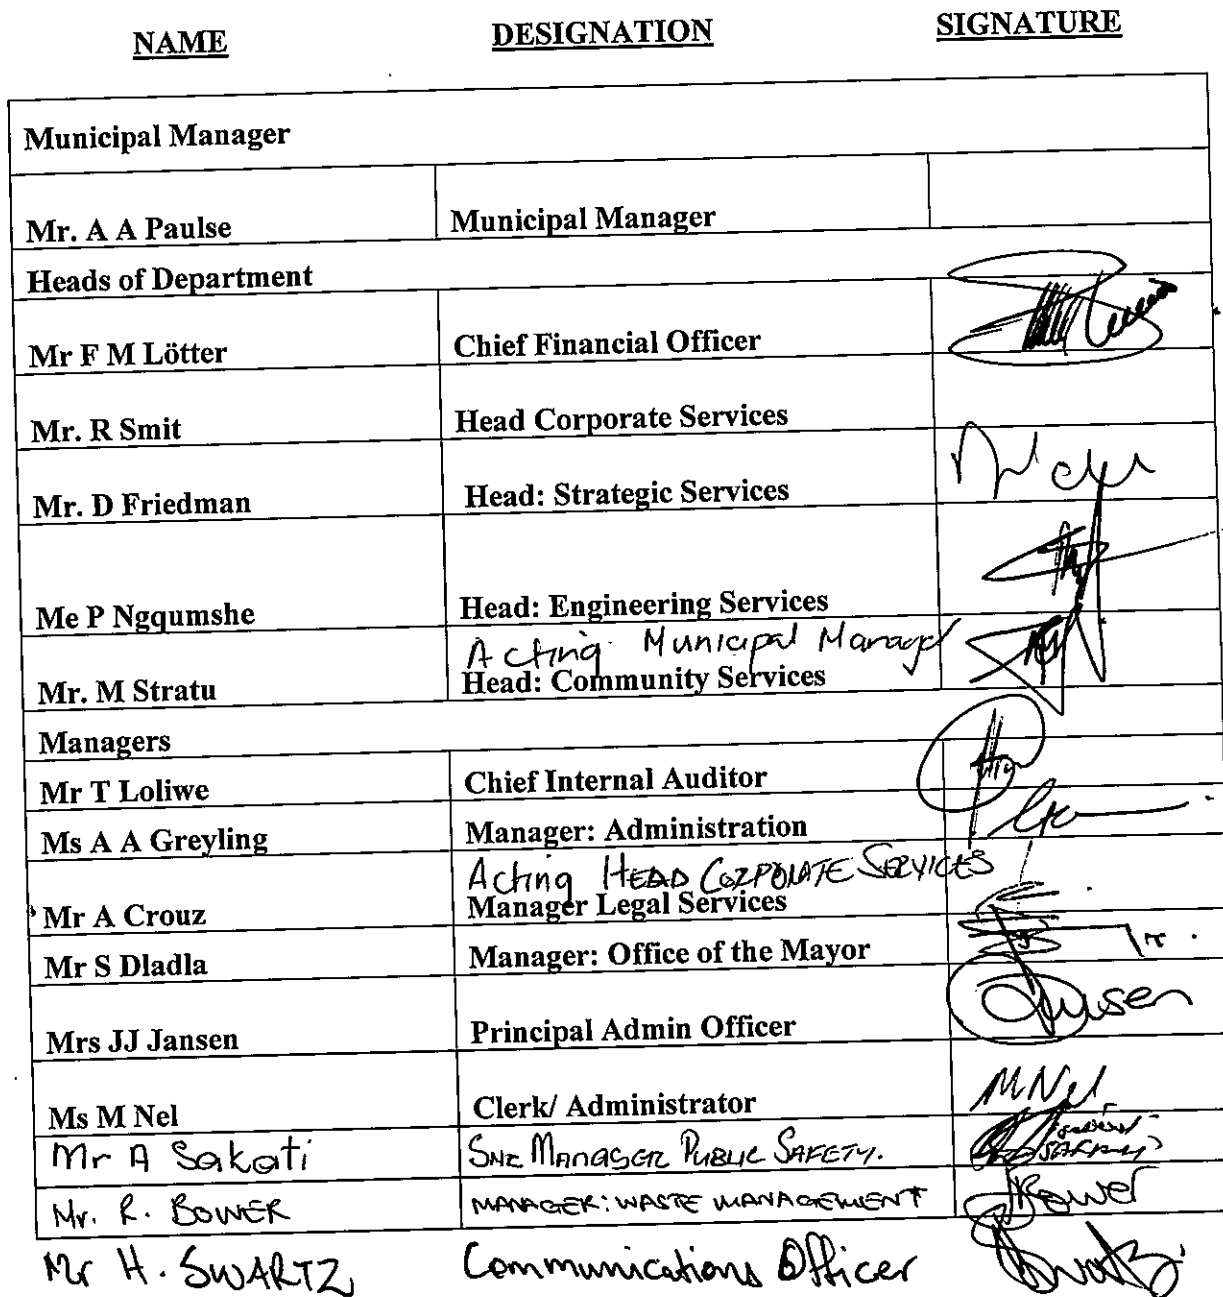 NAME DESIGNATION SIGNATURE
Municipal Manager
Mr. A A Paulse Municipal Manager
Heads of Department
Mr F M Lötter Chief Financial Officer
Mr. R Smit Head Corporate Services
Mr. D Friedman Head: Strategic Services
Me P Ngqumshe Head: Engineering Services
Acting Municipal Manager
Mr. M Stratu Head: Community Services
Managers
Mr T Loliwe Chief Internal Auditor
Ms A A Greyling Manager: Administration
Acting HEAD CORPORATE SERVICES
Mr A Crouz Manager Legal Services
Mr S Dladla Manager: Office of the Mayor
Mrs JJ Jansen Principal Admin Officer
Ms M Nel Clerk/ Administrator MNel
Mr A Sakati SNR MANAGER PUBLIC SAFETY.
Mr. R. BOWER MANAGER: WASTE MANAGEMENT Bower
Mr H. SWARTZ Communications Officer